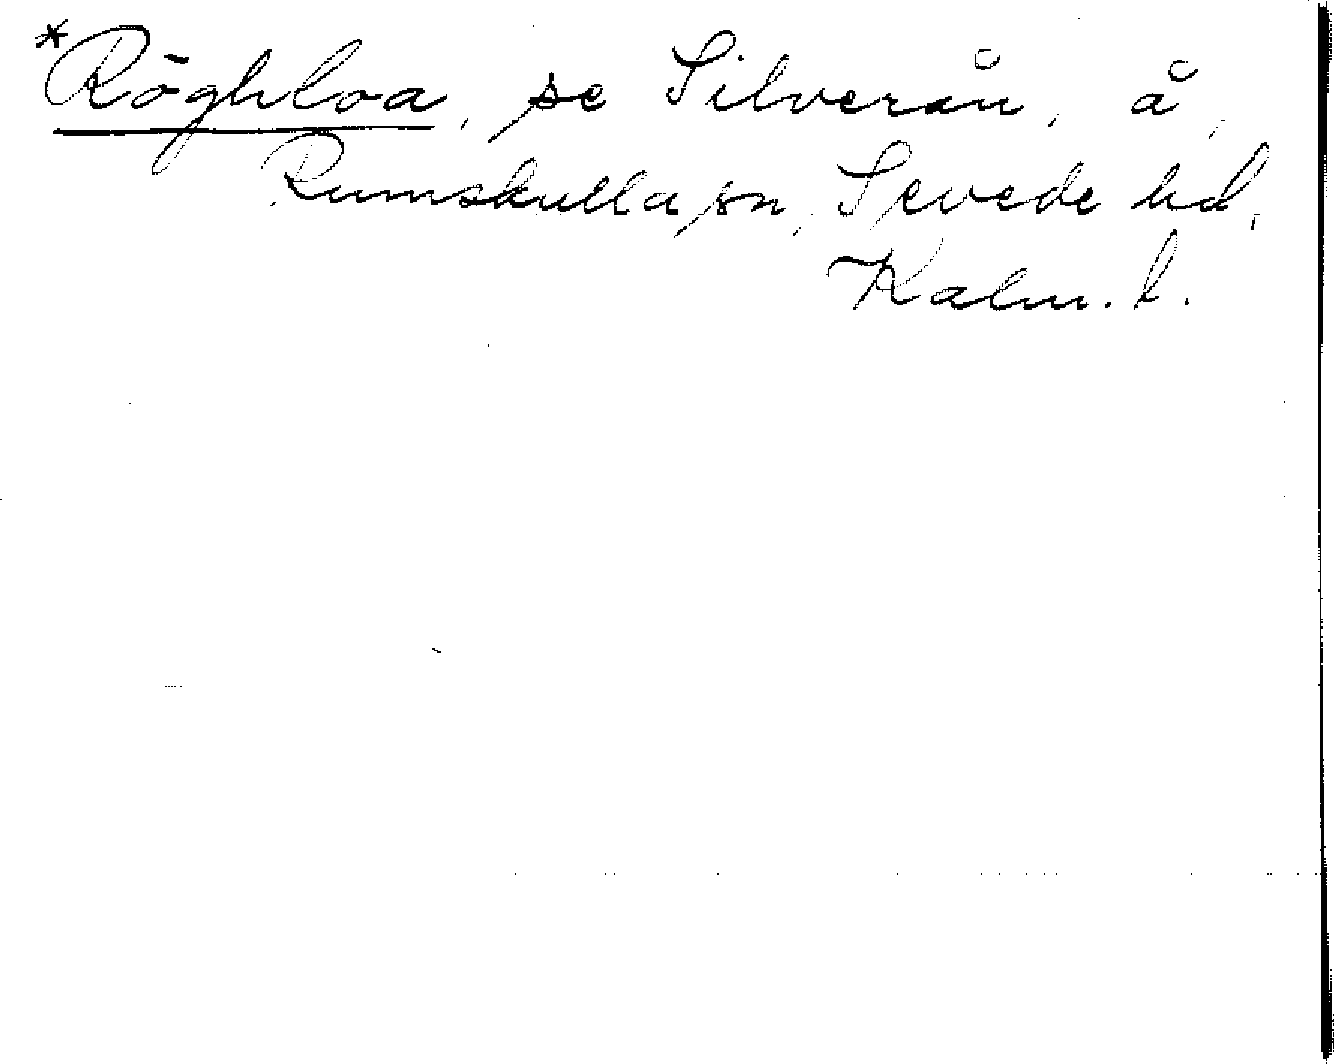 *Röghloa, se Silverån, å,
Rumskulla sn, Sevede hd,
Kalm. l.